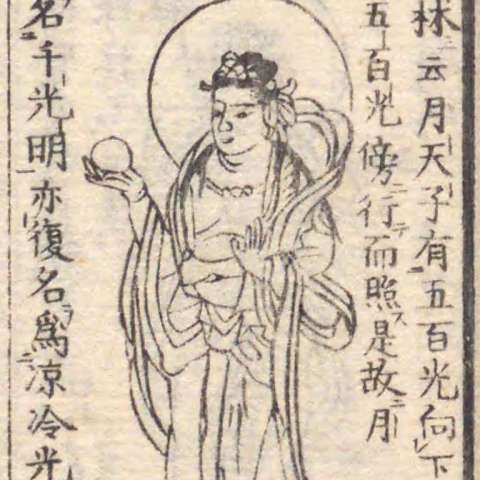 林云月天子有五百光向下
五百光傍行而照是故月
名千光明亦復名為涼冷光